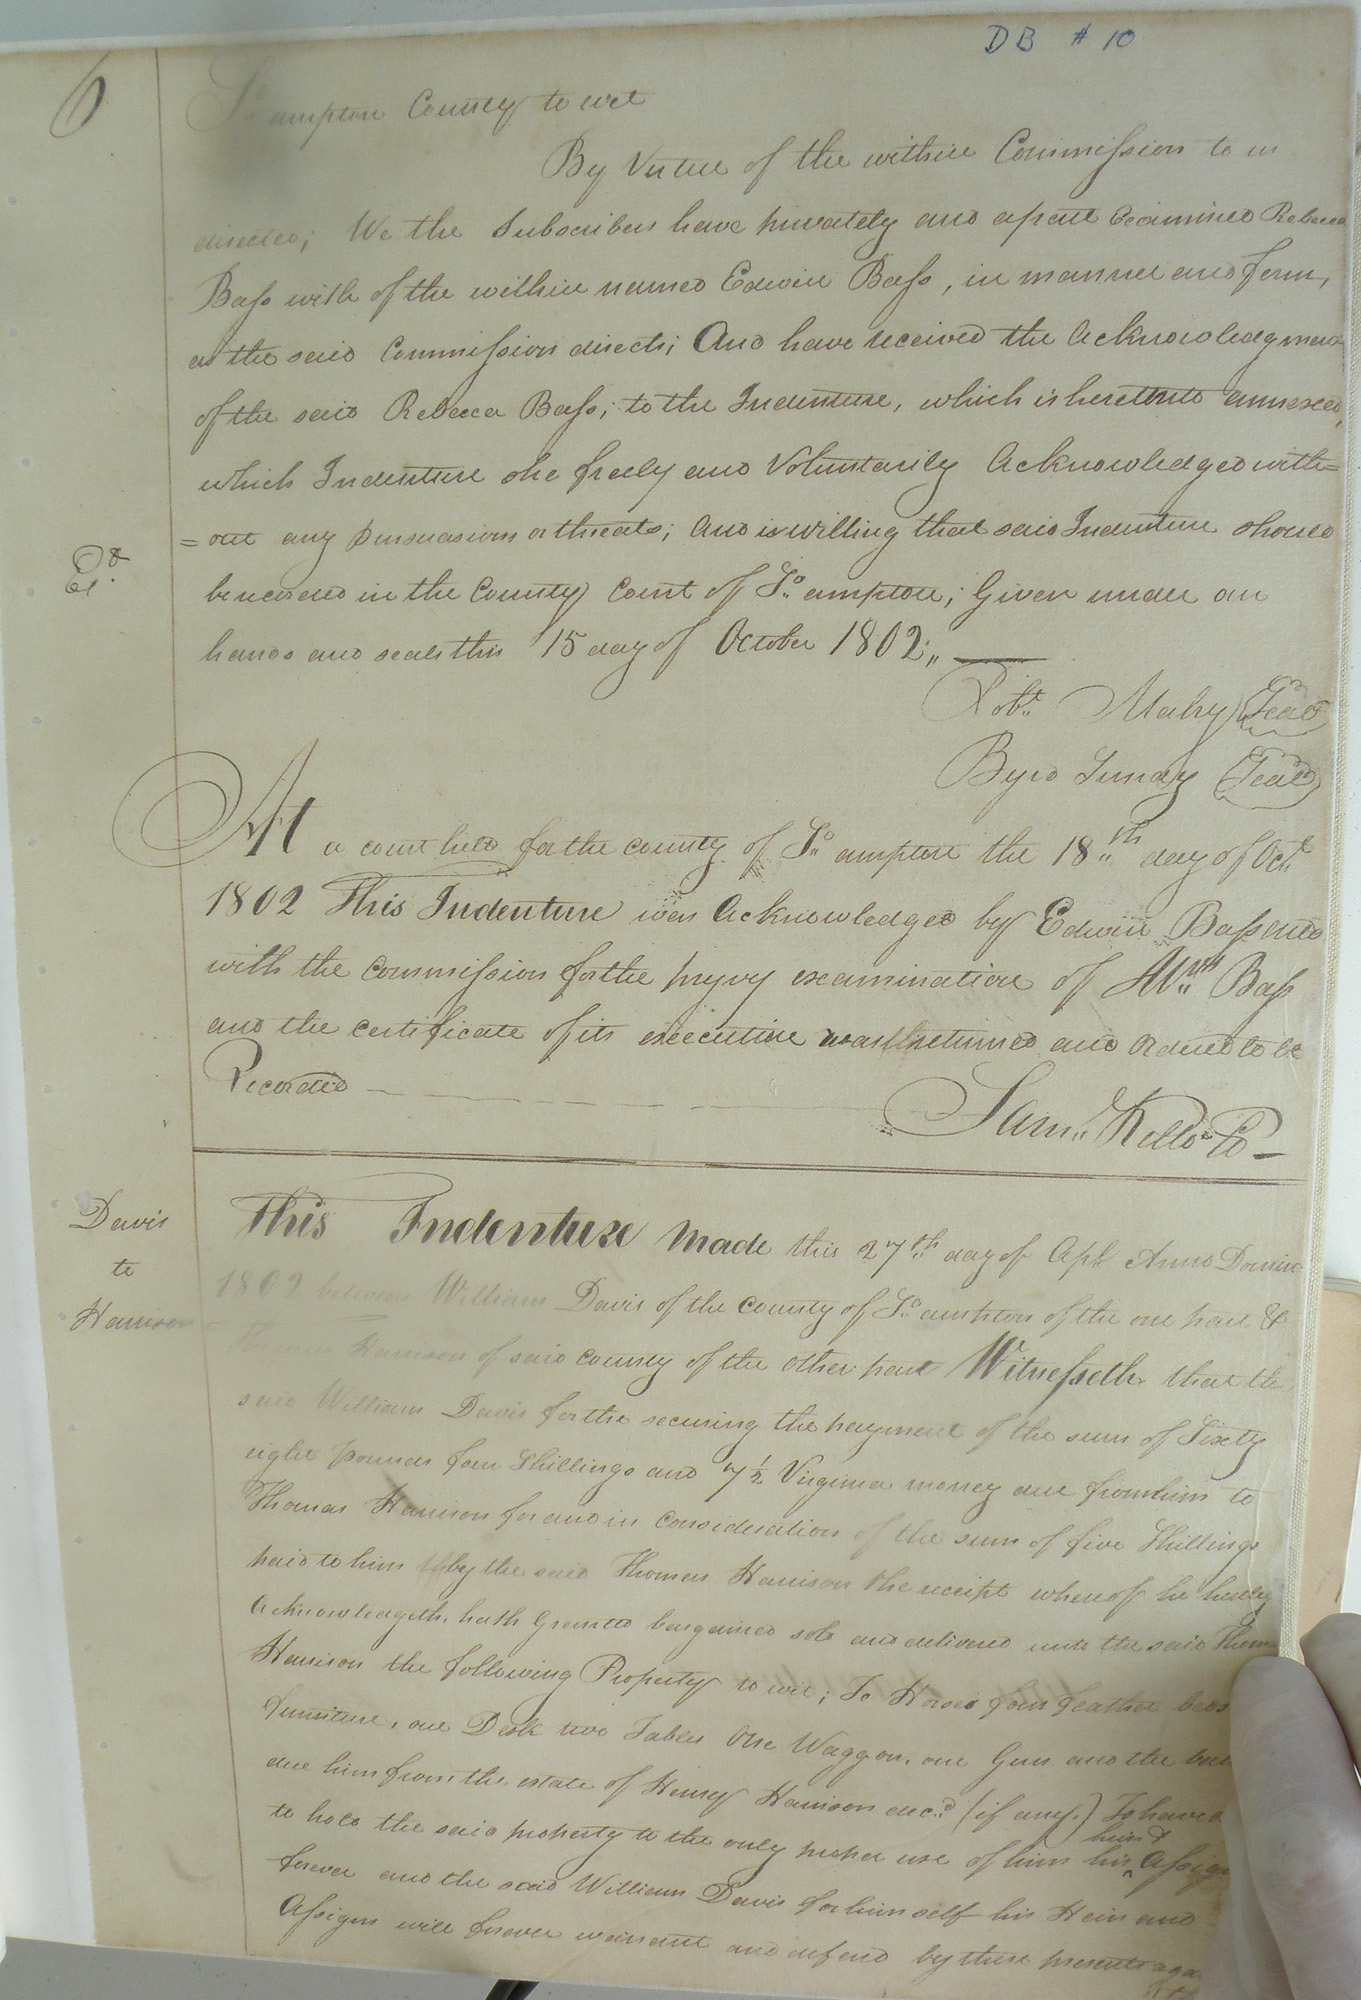 DB # 10
6
So. ampton County to wit
By Virtue of the within Commission to us
directed; We the Subscribers have privately and apart examined Rebecca
Bass wife of the within named Edwin Bass, in manner and form,
as the said Commission directs; And have received the Acknowledgment
of the said Rebecca Bass; to the Indenture, which is hereunto annexed,
which Indenture she freely and Voluntarily Acknowledged with=
=out any persuasions or threats; and is willing that said Indenture should
be recorded in the County Court of So. ampton; Given under our
hands and seals this 15 day of October 1802.,,
Robt. Mabry (Seal)
Byrd (Seal)
At a court held for the county of So. ampton the 18th day of Oct
1802 This Indenture was Acknowledged by Edwin Bass and
with the Commission for the pryvy examination of Bass
and the certificate of its execution was returned and ordered to be
Recorded
Saml. Kello
Davis
to
Harrison
This Indenture Made this 27th day of Apl. Anno Domini
1802 between William Davis of the County of So. ampton of the one part &
Thomas Harrison of said County of the other part Witnesseth that the
said William Davis for the securing the payment of the sum of Sixty
eight pounds four Shillings and 7½ Virginia money due from him to
Thomas Harrison for and in Consideration of the sum of five Shillings
paid to him by the said Thomas Harrison the receipt whereof he hereby
Acknowledgeth, hath Granted bargained sold and delivered unto the said Thomas
Harrison the following Property to wit; To Horses four feather beds
furniture, one Desk two Tables One Waggon, one Gun and the
due him from the estate of Henry Harrison decd. (if any.) To have &
to hold the said property to the only proper use of him his heirs & Assigns
forever and the said William Davis for himself his Heirs and
Assigns will forever warrant and defend by these presents